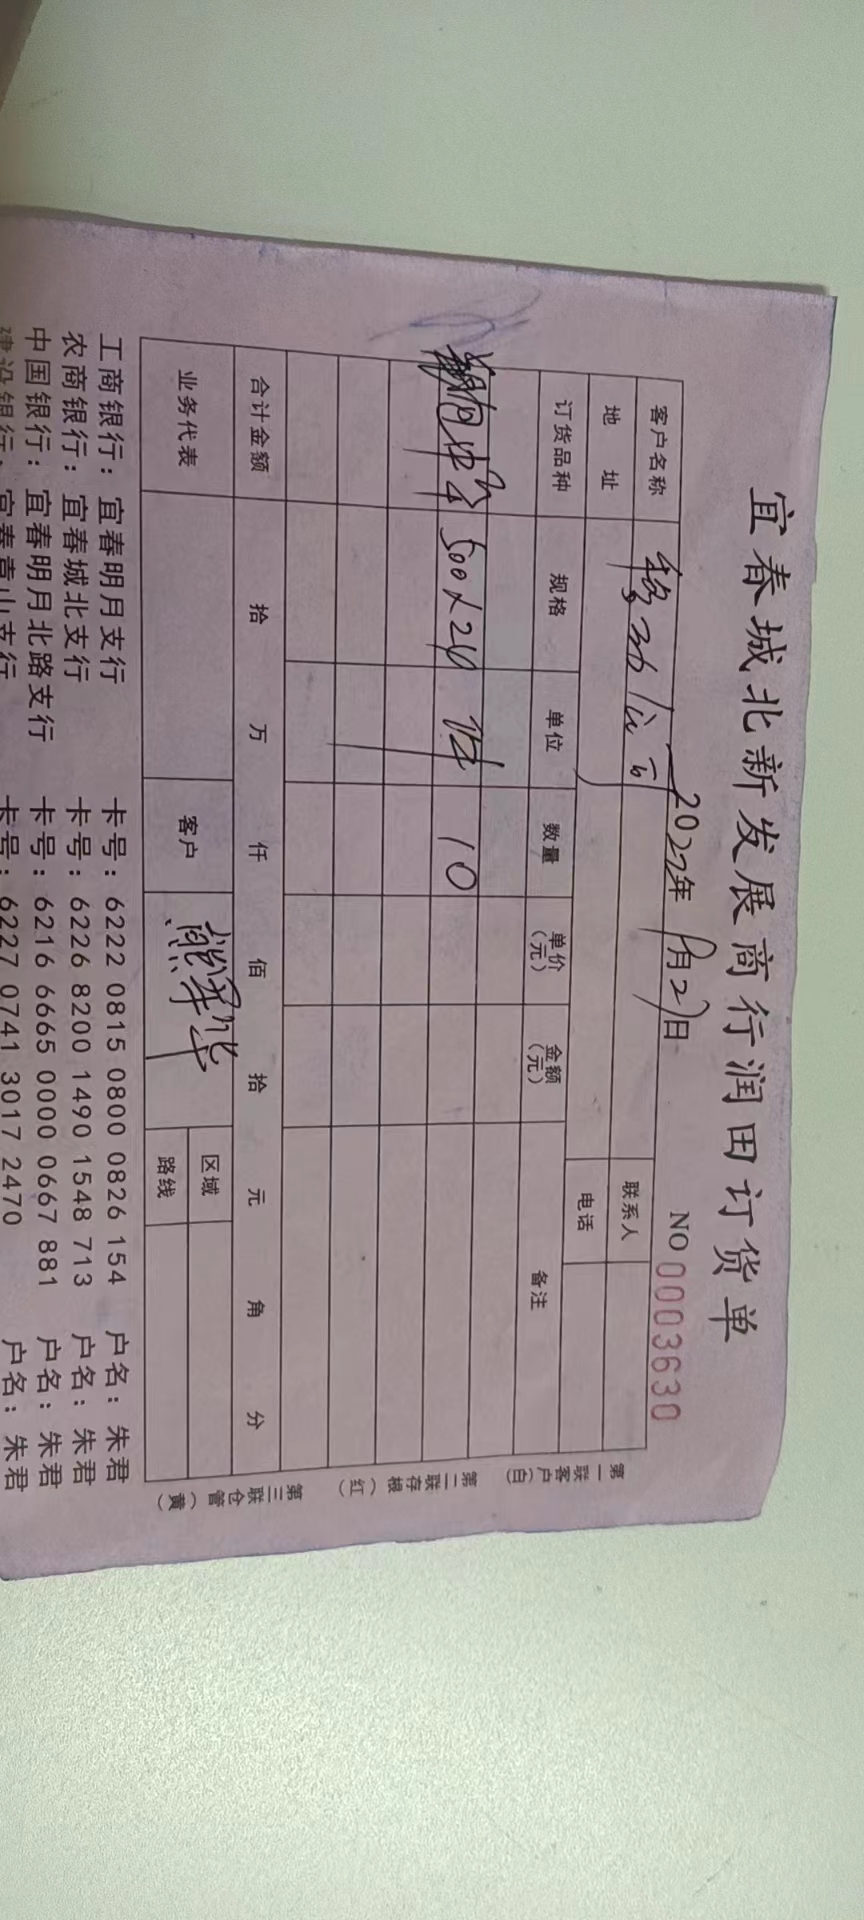 宜春城北新发展商行润田订货单
2022年 月2 日 NO 0003630
客户名称 联系人
地 址 电话
订货品种 规格 单位 数量 单价（元） 金额（元） 备注
500×24 10
合计金额 拾 万 仟 佰 拾 元 角 分
业务代表 客户 区域
路线
第一联客户（白） 第二联存根（红） 第三联仓管（黄）
工商银行：宜春明月支行 卡号：6222 0815 0800 0826 154 户名：朱君
农商银行：宜春城北支行 卡号：6226 8200 1490 1548 713 户名：朱君
中国银行：宜春明月北路支行 卡号：6216 6665 0000 0667 881 户名：朱君
建设银行：宜春袁山支行 卡号：6227 0741 3017 2470 户名：朱君